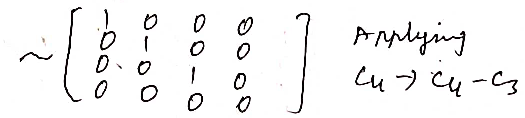 ~ [ 1 0 0 0
0 1 0 0
0 0 1 0
0 0 0 0 ]
Applying
C4 → C4 – C3